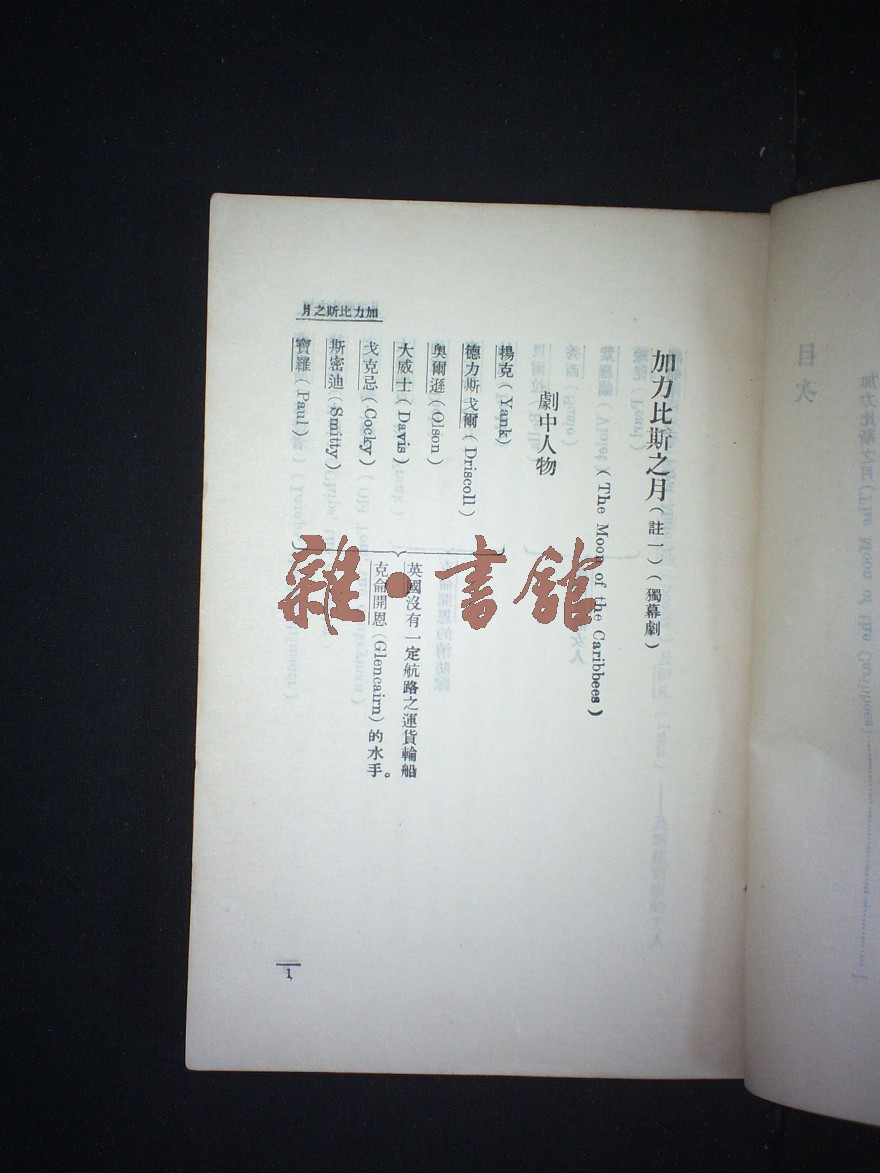 加力比斯之月
加力比斯之月(註一)(獨幕劇)
(The Moon of the Caribbees)
劇中人物
揚克(Yank)
德力斯戈爾(Driscoll)
奧爾遜(Olson)
大威士(Davis)
戈克忌(Cocky)
斯密迪(Smitty)
寶羅(Paul)
英國沒有一定航路之運貨輪船
克侖開恩(Glencairn)的水手。
1
雜·書館
目次